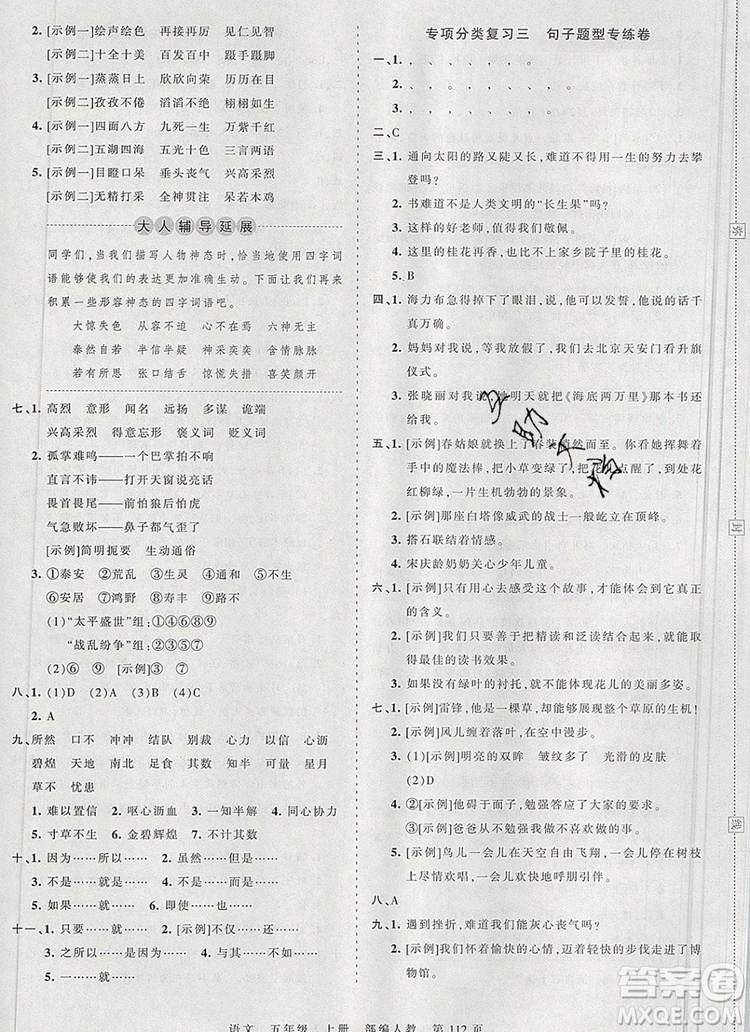 2. [示例一]绘声绘色　再接再厉　见仁见智
[示例二]十全十美　百发百中　大摇大摆
3. [示例一]蒸蒸日上　欣欣向荣　历历在目
[示例二]孜孜不倦　滔滔不绝　栩栩如生
4. [示例一]四面八方　九死一生　万紫千红
[示例二]五湖四海　五光十色　三言两语
5. [示例一]目瞪口呆　垂头丧气　兴高采烈
[示例二]无精打采　全神贯注　呆若木鸡
大人辅导延展
同学们,当我们描写人物神态时,恰当地使用四字词
语能够使我们的表达更加准确生动。下面我们再来
积累一些形容神态的四字词语吧。
大惊失色　从容不迫　心不在焉　六神无主
泰然自若　半信半疑　神采奕奕　含情脉脉
若有所思　张口结舌　惊慌失措　喜笑颜开
七、1. 高烈　意形　闻名　远扬　多谋　诡端
兴高采烈　得意忘形　褒义词　贬义词
2. 孤掌难鸣——一个巴掌拍不响
直言不讳——打开天窗说亮话
畏首畏尾——前怕狼后怕虎
气急败坏——鼻子都气歪了
[示例]简明扼要　生动通俗
3. ①泰安　②荒乱　③生灵　④清平　⑤四起
⑥安居　⑦鸿野　⑧寿丰　⑨路不
(1)“太平盛世”组:①④⑥⑧⑨
“战乱纷争”组:②③⑤⑦
(2)⑥　⑨　[示例]③　⑦
八、1. (1)D　(2)A　(3)B　(4)C
2. A
九、所然　口不　冲冲　结队　别裁　心力　信信　心沥
碧煌　天地　南北　足食　其数　万物　可奈　星月
草不　忧患
1. 难以置信　2. 呕心沥血　3. 一知半解　4. 同心协力
5. 寸草不生　6. 金碧辉煌　7. 不计其数
十、1. 因为……所以……　2. 虽然……但是……
3. 不是……就是……　4. 不是……而是……
5. 如果……就……　6. 即使……也……
十一、1. 只要……就……　2. [示例]只有……才……
3. 之所以……是因为……　4. 与其……不如……
5. ……因为……　6. ……就……
专项分类复习三　句子题型专练卷
一、1. 、　、　、　、　、　、
2. 、　、　、　、　、　、
3. 、　、　、　、　、　、
二、C
三、1. 通向太阳的路又陡又长,难道不得用一生的努力去攀
登吗?
2. 书难道不是人类文明的“长生果”吗?
3. 这样的好老师,值得我们敬佩。
4. 这里的桂花再香,也比不上家乡院子里的桂花。
5. B
四、1. 海力布急得掉下了眼泪,说他可以发誓,他说的话千
真万确。
2. 妈妈对我说,明天,她要带我们去北京天安门看升旗
仪式。
3. 张晓丽对刘刚说,她明天就把《海底两万里》那本书还
给我。
五、1. [示例]春姑娘就换上了春装悄然而至。你看她挥舞着
手中的魔法棒,把小草变绿了,把花儿点醒了,到处花
红柳绿,一片生机勃勃的景象。
2. [示例]那座白塔像威武的战士一般屹立在顶峰。
3. 搭石联结着情感。
4. 宋庆龄奶奶关心少年儿童。
六、1. [示例]只有用心去感受这个故事,才能体会到它真正
的含义。
2. [示例]我们只要善于把精读和泛读结合起来,就能取
得最佳的读书效果。
3. 如果没有绿叶的衬托,就不能体现花儿的美丽多姿。
七、1. [示例]雷锋,他是一棵草,却能够展现整个草原的生机!
2. [示例]那儿的云,在空中漫步。
3. (1)[示例]明亮的双眸　皱纹　光滑的皮肤
(2)D
4. ②[示例]面子上,勉强答应了大家的要求。
③[示例]爸爸从不勉强我做不愿意做的事。
5. [示例]鸟儿一会儿在天空自由飞翔,一会儿在树枝
上嬉戏唱歌,一会儿欢快地呼朋引伴。
八、A
九、1. 遇到挫折,难道我们能灰心丧气吗?
2. [示例]我们怀着愉快的心情,迈着整齐的步伐走进了
博物馆。
弥
封
线
语文　五年级　上册　部编人教　第 112 页
答案圈
MXQE.COM